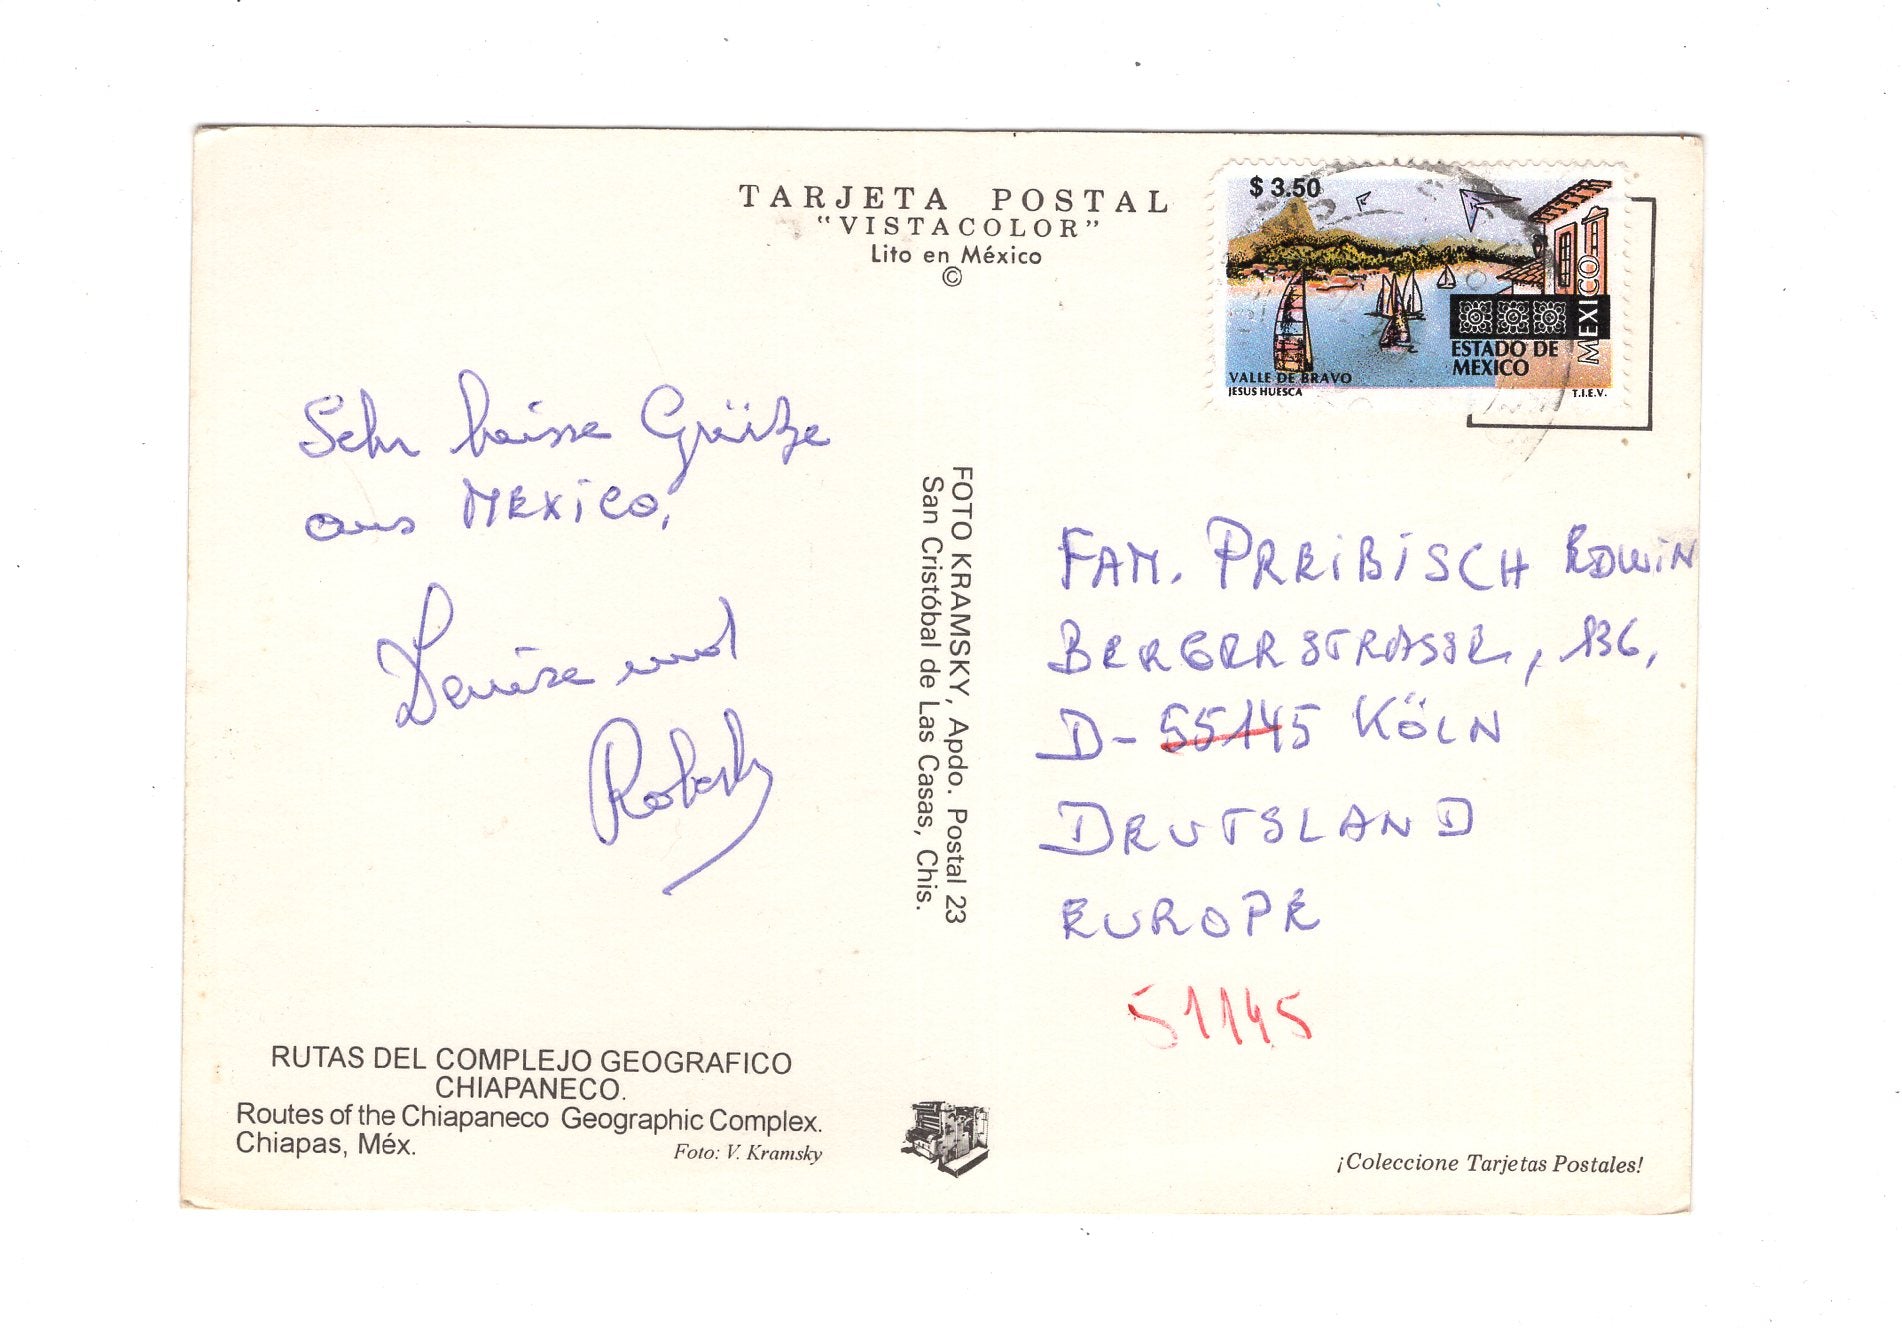 TARJETA POSTAL
"VISTACOLOR"
Lito en México
©
$ 3.50
MEXICO
ESTADO DE
MEXICO
VALLE DE BRAVO
JESUS HUESCA
T.I.E.V.
Sehr heisse Grüße
aus MEXICO,
Denise und
Robert
FOTO KRAMSKY, Apdo. Postal 23
San Cristóbal de Las Casas, Chis.
FAM. PREIBISCH EDWIN
BERGERSTRASSE, 136,
D-55145 KÖLN
DEUTSLAND
EUROPE
51145
RUTAS DEL COMPLEJO GEOGRAFICO
CHIAPANECO.
Routes of the Chiapaneco Geographic Complex.
Chiapas, Méx.
Foto: V. Kramsky
¡Coleccione Tarjetas Postales!